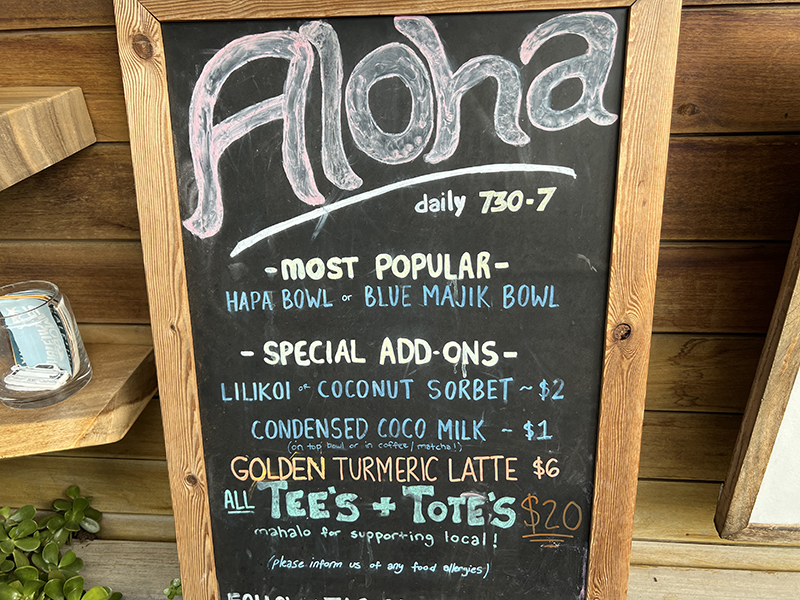 Aloha
daily 730-7
-MOST POPULAR-
HAPA BOWL or BLUE MAJIK BOWL
-SPECIAL ADD-ONS-
LILIKOI or COCONUT SORBET ~ $2
CONDENSED COCO MILK ~ $1
(on top bowl or in coffee/matcha!)
GOLDEN TURMERIC LATTE $6
ALL TEE'S + TOTE'S $20
mahalo for supporting local!
(please inform us of any food allergies)